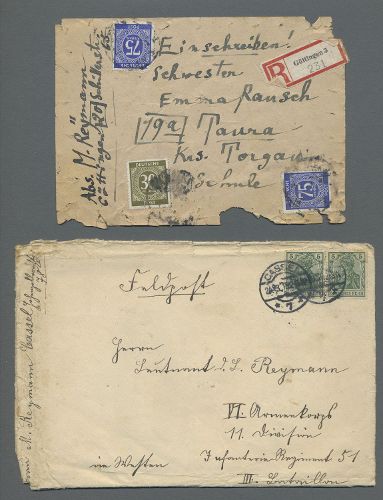 75
Einschreiben!
Schwester
Emma Rausch
19a Taura
Krs. Torgau
Schule
R
Göttingen 3
231
Abs. M. Reymann
Göttingen
DEUTSCHE
30
75
Feldpost
CASSEL
7
5 5
5 5
Herrn
Leutnant d. L. Reymann
VI. Armeekorps
11. Division
im Westen Infanterie Regiment 51
III. Bataillon
M. Reymann Cassel